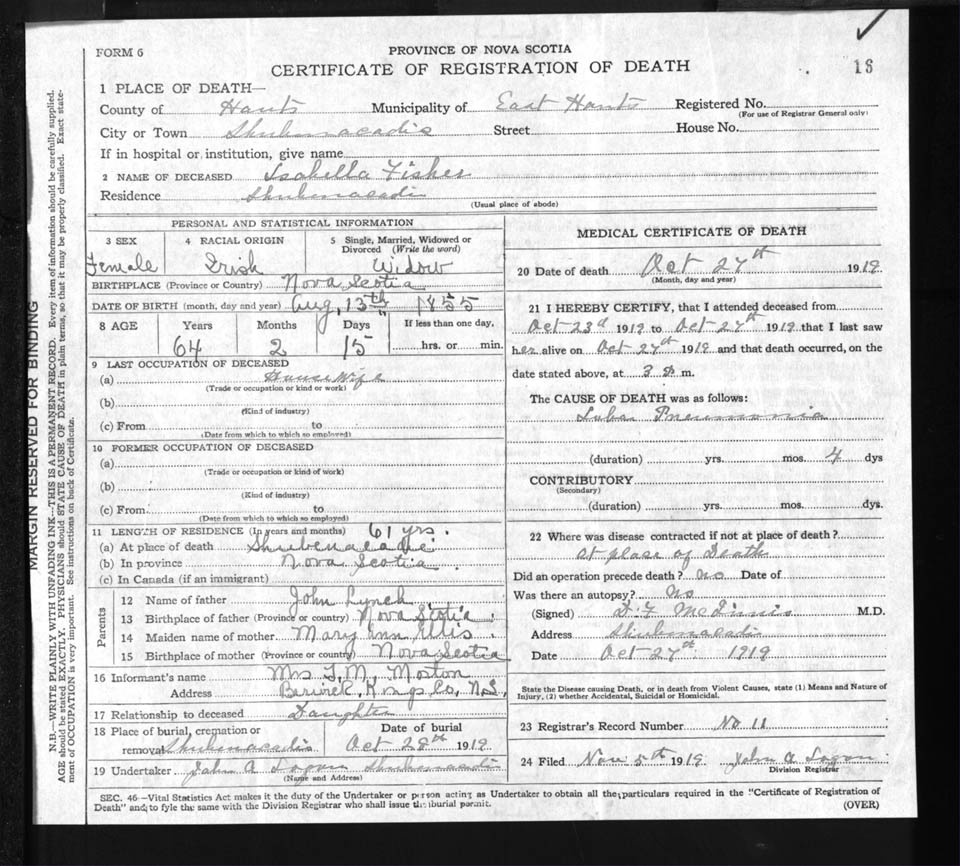 FORM 6
PROVINCE OF NOVA SCOTIA
CERTIFICATE OF REGISTRATION OF DEATH
13
1 PLACE OF DEATH—
County of Hants Municipality of East Hants Registered No.
(For use of Registrar General only)
City or Town Shubenacadie Street House No.
If in hospital or institution, give name
2 NAME OF DECEASED Isabella Fisher
Residence Shubenacadie
(Usual place of abode)
PERSONAL AND STATISTICAL INFORMATION
3 SEX 4 RACIAL ORIGIN 5 Single, Married, Widowed or Divorced (Write the word)
Female Irish Widow
BIRTHPLACE (Province or Country) Nova Scotia
DATE OF BIRTH (month, day and year) Aug, 13th 1855
8 AGE Years Months Days If less than one day,
64 2 15 hrs. or min.
9 LAST OCCUPATION OF DECEASED
(a) House Wife
(Trade or occupation or kind or work)
(b)
(Kind of industry)
(c) From to
(Date from which to which so employed)
10 FORMER OCCUPATION OF DECEASED
(a)
(Trade or occupation or kind of work)
(b)
(Kind of industry)
(c) From to
(Date from which to which so employed)
11 LENGTH OF RESIDENCE (In years and months) 61 yrs.
(a) At place of death Shubenacadie
(b) In province Nova Scotia
(c) In Canada (if an immigrant)
Parents
12 Name of father John Lynch
13 Birthplace of father (Province or country) Nova Scotia
14 Maiden name of mother Mary Ann Ellis
15 Birthplace of mother (Province or country) Nova Scotia
16 Informant's name Mrs F. M. Morton
Address Berwick, Kings Co, N.S,
17 Relationship to deceased Daughter
18 Place of burial, cremation or removal Shubenacadie Date of burial Oct 28th 1919
19 Undertaker John A Logan Shubenacadie
(Name and Address)
MEDICAL CERTIFICATE OF DEATH
20 Date of death Oct 27th 1919
(Month, day and year)
21 I HEREBY CERTIFY, that I attended deceased from
Oct 23d 1919 to Oct 27th 1919 that I last saw
her alive on Oct 27th 1919 and that death occurred, on the
date stated above, at 3 m.
The CAUSE OF DEATH was as follows:
Lobar Pneumonia
(duration) yrs. mos. 4 dys
CONTRIBUTORY
(Secondary)
(duration) yrs. mos. dys.
22 Where was disease contracted if not at place of death?
At place of Death
Did an operation precede death? no Date of
Was there an autopsy? No
(Signed) D. F. McInnis M.D.
Address Shubenacadie
Date Oct 27th 1919
State the Disease causing Death, or in death from Violent Causes, state (1) Means and Nature of
Injury, (2) whether Accidental, Suicidal or Homicidal.
23 Registrar's Record Number No 11
24 Filed Nov 5th 1919 John A Logan
Division Registrar
SEC. 46—Vital Statistics Act makes it the duty of the Undertaker or person acting as Undertaker to obtain all the particulars required in the "Certificate of Registration of
Death" and to fyle the same with the Division Registrar who shall issue the burial permit.
(OVER)
MARGIN RESERVED FOR BINDING
N.B.—WRITE PLAINLY WITH UNFADING INK—THIS IS A PERMANENT RECORD. Every item of information should be carefully supplied.
AGE should be stated EXACTLY. PHYSICIANS should STATE CAUSE OF DEATH in plain terms, so that it may be properly classified. Exact state-
ment of OCCUPATION is very important. See instructions on back of Certificate.